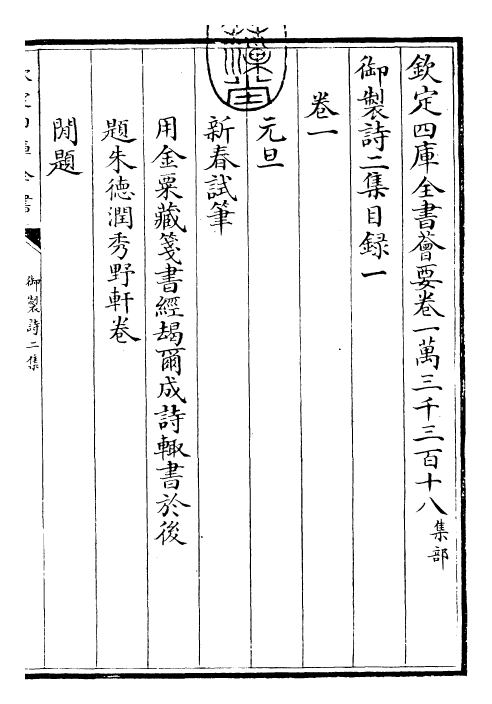 欽定四庫全書薈要卷一萬三千三百十八集部
御製詩二集目録一
卷一
元旦
新春試筆
用金粟藏箋書經朅爾成詩輙書於後
題朱徳潤秀野軒卷
閒題
御製詩二集